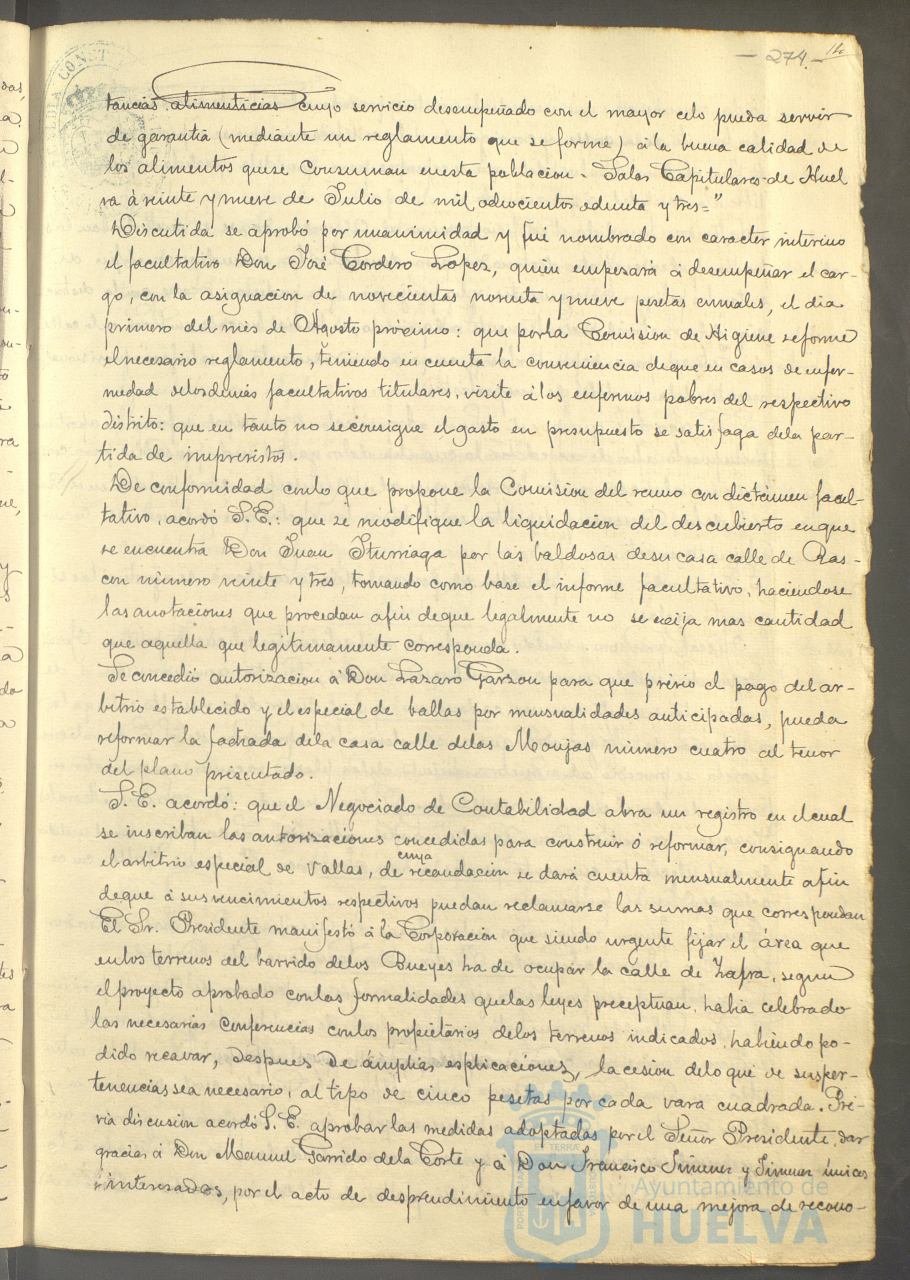 - 274 -
tancias alimenticias cuyo servicio desempeñado con el mayor celo pueda servir
de garantia (mediante un reglamento que se forme) á la buena calidad de
los alimentos que se consuman en esta poblacion - Salas Capitulares de Huel
va á veinte y nueve de Julio de mil ochocientos ochenta y tres="
Discutida se aprobó por unanimidad y fué nombrado con caracter interino
el facultativo Don José Cordero Lopez, quien empezará á desempeñar el car-
go, con la asignacion de novecientas noventa y nueve pesetas anuales, el dia
primero del mes de Agosto prócsimo: que por la Comision de Higiene se forme
el necesario reglamento, teniendo en cuenta la conveniencia de que en casos de enfer-
medad de los demás facultativos titulares, visite á los enfermos pobres del respectivo
distrito: que en tanto no se consigue el gasto en presupuesto se satisfaga de la par-
tida de imprevistos.
De conformidad con lo que propone la Comision del ramo con dictámen facul-
tativo, acordó S.E.: que se modifique la liquidacion del descubierto en que
se encuentra Don Juan Iturriaga por las baldosas de su casa calle de Ras-
con número veinte y tres, tomando como base el informe facultativo, haciendose
las anotaciones que procedan afin de que legalmente no se exija mas cantidad
que aquella que legítimamente corresponda.
Se concedió autorizacion á Don Lázaro Garzon para que prévio el pago del ar-
bitrio establecido y el especial de ballas por mensualidades anticipadas, pueda
reformar la fachada de la casa calle de las Monjas número cuatro al tenor
del plano presentado.
S.E. acordó: que el Negociado de Contabilidad abra un registro en el cual
se inscriban las autorizaciones concedidas para construir ó reformar, consignando
el arbitrio especial de vallas, de cuya recaudacion se dará cuenta mensualmente afin
de que á sus vencimientos respectivos puedan reclamarse las sumas que correspondan
El Sr. Presidente manifestó á la Corporacion que siendo urgente fijar el área que
en los terrenos del barrido de los Bueyes ha de ocupar la calle de Zafra, segun
el proyecto aprobado con las formalidades que las leyes preceptuan, habia celebrado
las necesarias conferencias con los propietarios de los terrenos indicados, habiendo po-
dido recavar, despues de ámplias esplicaciones, la cesion de lo que de sus per-
tenencias sea necesario, al tipo de cinco pesetas por cada vara cuadrada. Pre-
via discusion acordó S.E. aprobar las medidas adoptadas por el Señor Presidente, dar
gracias á Don Manuel Garrido de la Corte y á Don Francisco Jimenez y Jimenez únicos
interesados, por el acto de desprendimiento en favor de una mejora de recono-
Ayuntamiento de
HUELVA